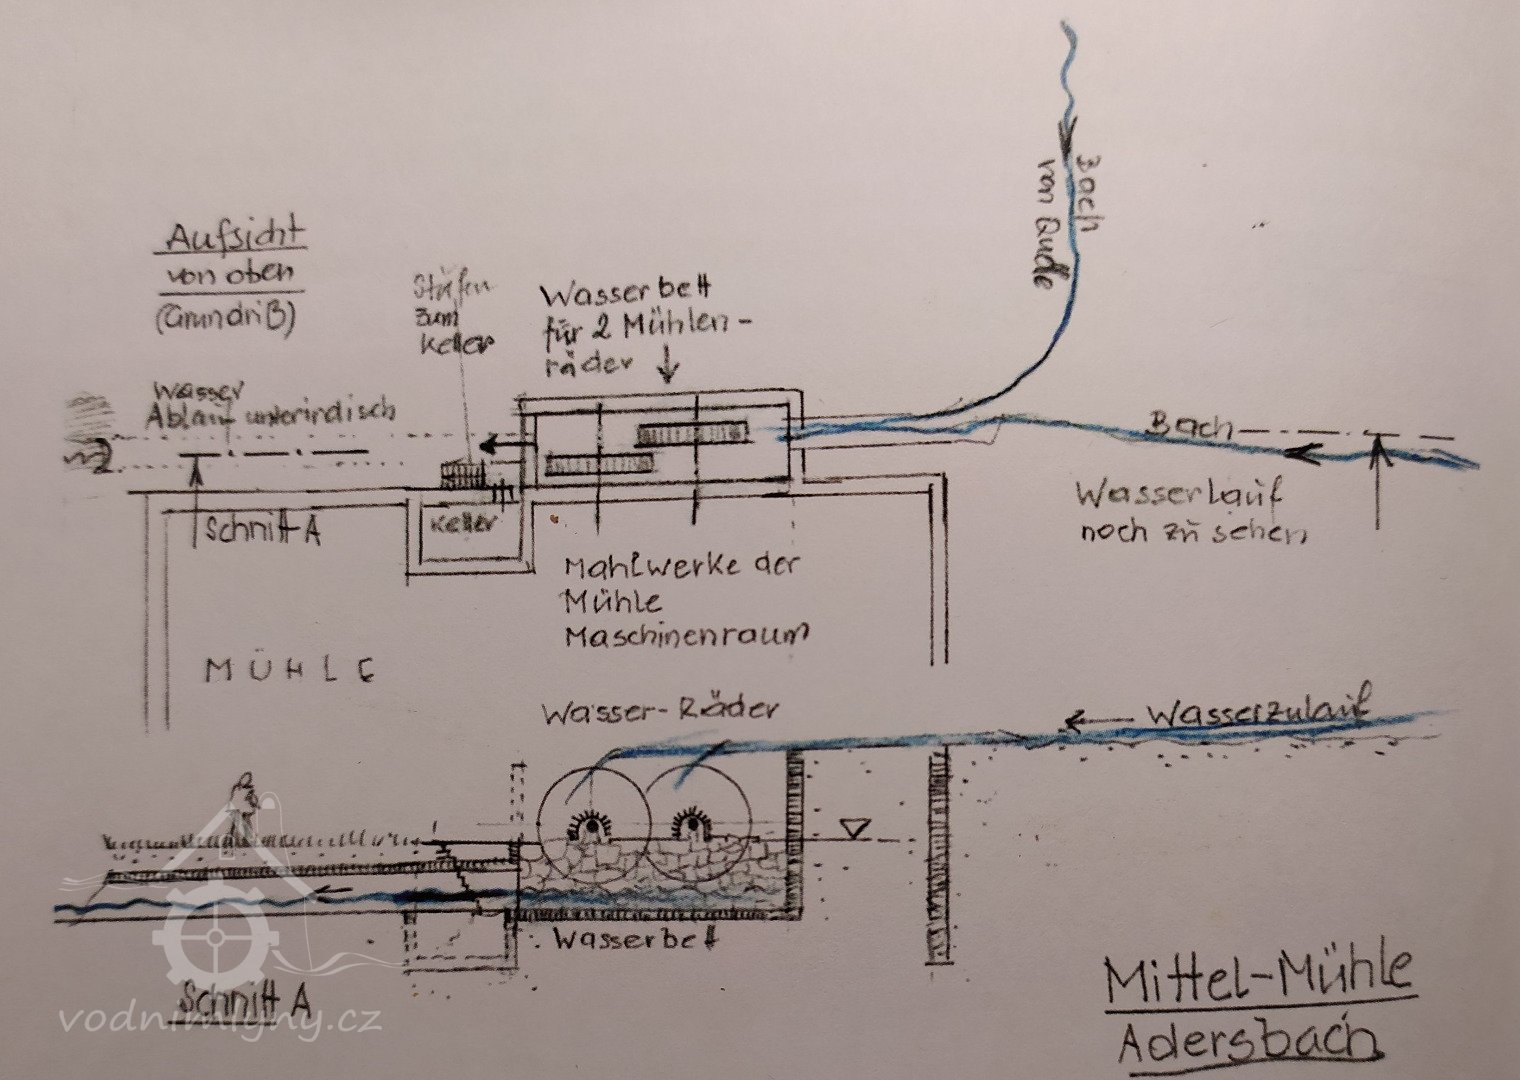 Aufsicht
von oben
(Grundriß)
Stufen
zum
Keller
Wasserbett
für 2 Mühlen-
räder
Bach
von Quelle
Wasser
Ablauf unterirdisch
Bach
Wasserlauf
noch zu sehen
Schnitt A
Keller
Mahlwerke der
Mühle
Maschinenraum
MÜHLE
Wasser-Räder
Wasserzulauf
Wasserbett
Schnitt A
vodnimlyny.cz
Mittel-Mühle
Adersbach